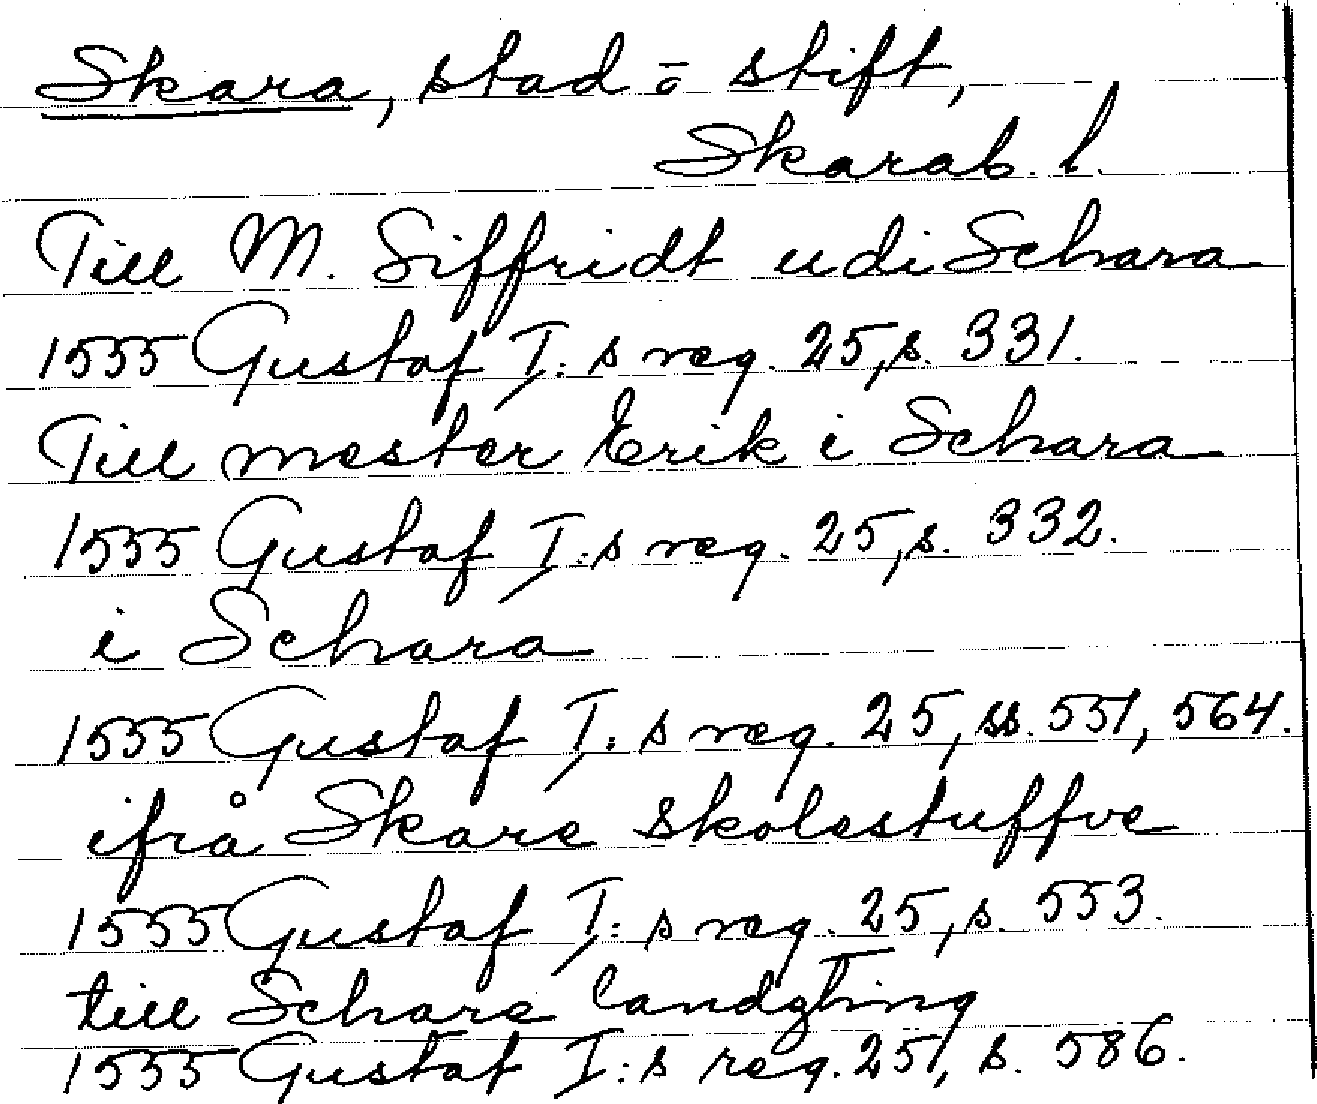 Skara, stad o stift,
Skarab. l.
Till M. Siffridt udi Schara
1555 Gustaf I:s reg. 25, s. 331.
Till mester Erik i Schara
1555 Gustaf I:s reg. 25, s. 332.
i Schara
1555 Gustaf I:s reg. 25, ss. 551, 564.
ifrå Skare skolestuffve
1555 Gustaf I:s reg. 25, s. 553.
till Schare landzting
1555 Gustaf I:s reg. 25, s. 586.